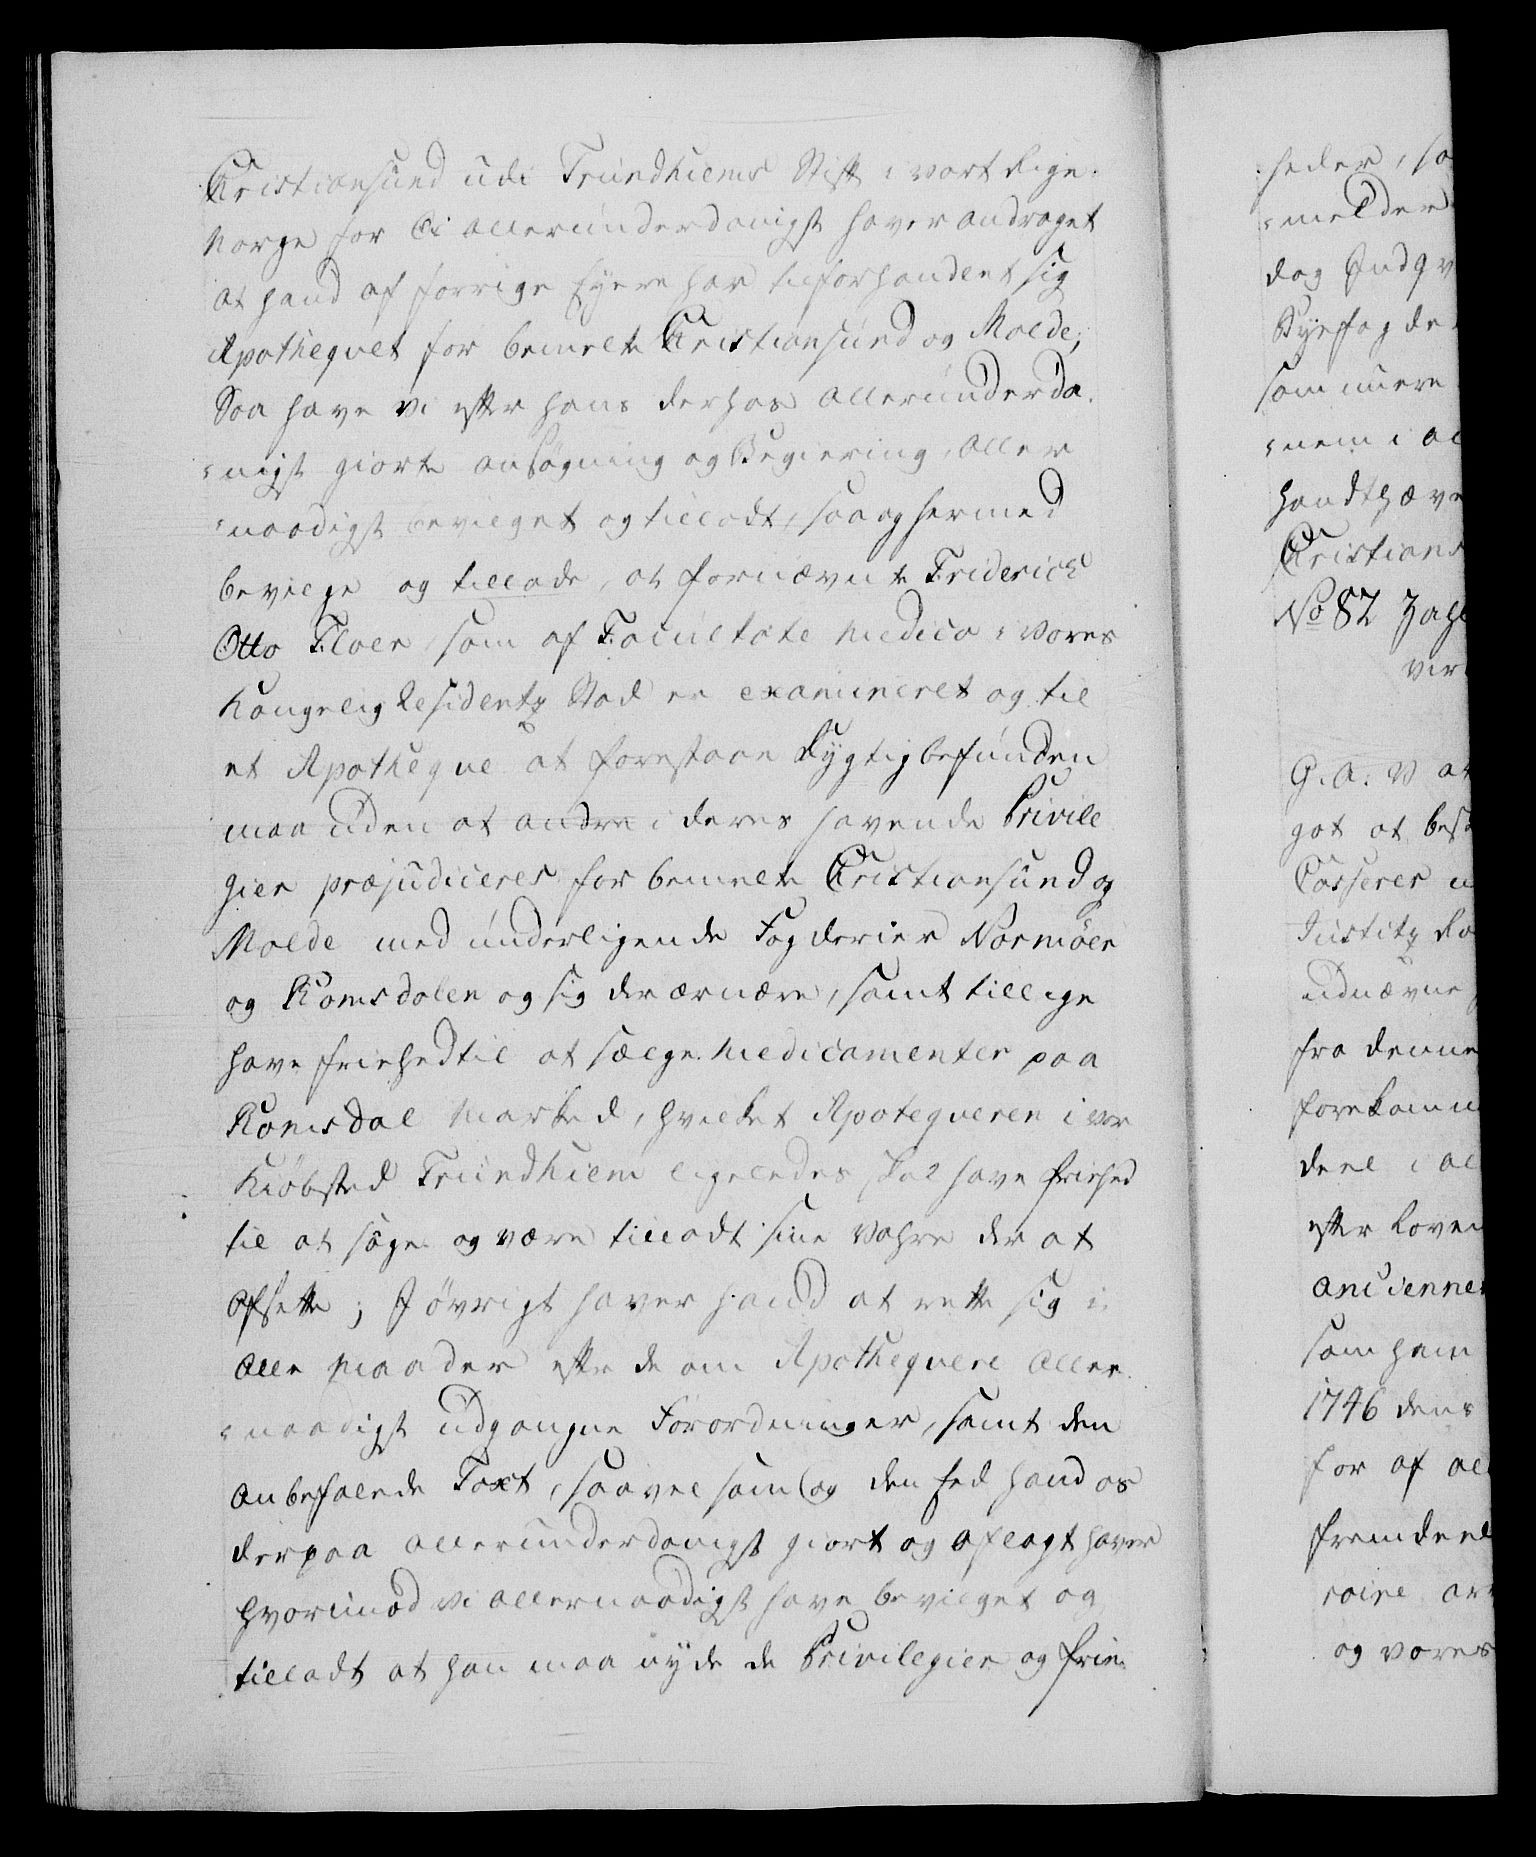 Christiansund udi Trundhiems Stift i vort Rige
Norge for Os allerunderdanigst haver andraget
at hand af forrige Eyere har tilforhandlet sig
Apothequet for bemelte Christiansund og Molde,
Saa have vi efter hans derhos allerunderda-
nigst giorte ansøgning og Begiering, aller
naadigst bevilget og tilladt, saa og hermed
bevilge og tillade, at fornævnte Friderich
Otto Floer som af Facultate Medica i vores
Kongelig Residentz Stad er examineret og til
et Apotheque at forestaae dygtig befunden
maa uden at andre i deres havende Privile
gier præjudiceres for bemelte Christiansund og
Molde med underligende Fogderier Normöer
og Romsdalen og sig der ærnære, samt tillige
have friehed til at sælge Medicamenter paa
Romsdal Marked, hvilket Apotequeren i vor
Kiöbsted Trundhiem ligeledes skal have friehed
til at søge og være tilladt sine Vahre der at
afsette; I øvrigt haver hand at rette sig i
alle Maader efter de om Apothequere aller-
naadigst udgangne Forordninger, samt den
anbefalede Taxt, saavel som og den Eed hand os
derpaa allerunderdanigst giort og aflagt haver
hvorimod vi allernaadigst have bevilget og
tilladt at han maa nyde de Privilegier og frie-
heder, sa
melder
dag Indqv
Byefogde
som nuere
nem i al
handthæve
Christians
No 82
G. A. V at
got at bes
Casserer u
Justitz Ra
udnævne
fra denne
forekomm
deel i al
efter Loven
ancienne
som hem
1746 dens
for af al
fremdeel
og vores